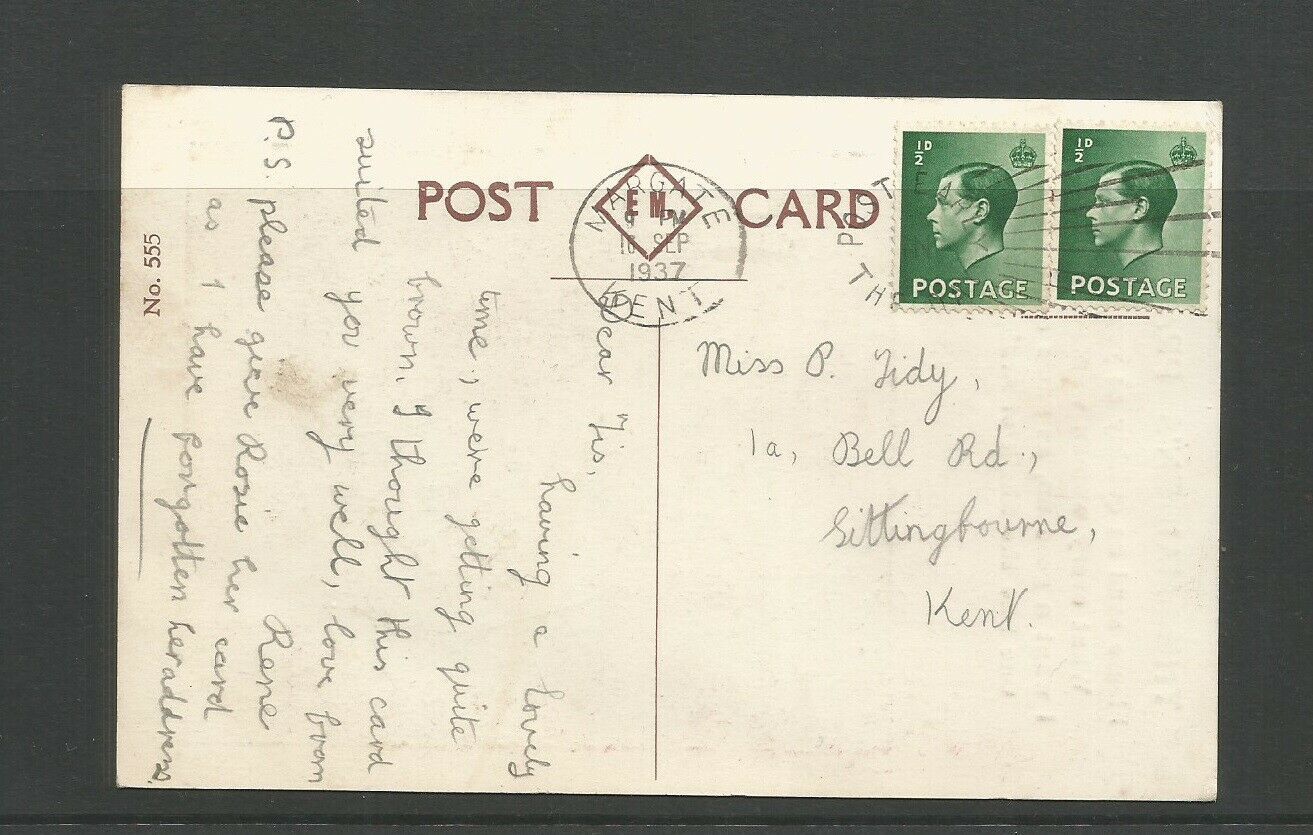 POST CARD
E.M.
No. 555
MARGATE
PM
SEP
1937
KENT
POST EA
THE
½D
POSTAGE
½D
POSTAGE
Dear Tis,
having a lovely
time, were getting quite
brown. I thought this card
suited you very well, love from
Rene
P.S. please give Rosie her card
as I have forgotten her address.
Miss P. Tidy,
1a, Bell Rd.,
Sittingbourne,
Kent.